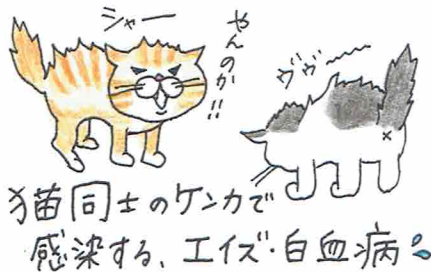 シャー
やんのか!!
ヴヴ〜〜
猫同士のケンカで
感染する、エイズ・白血病